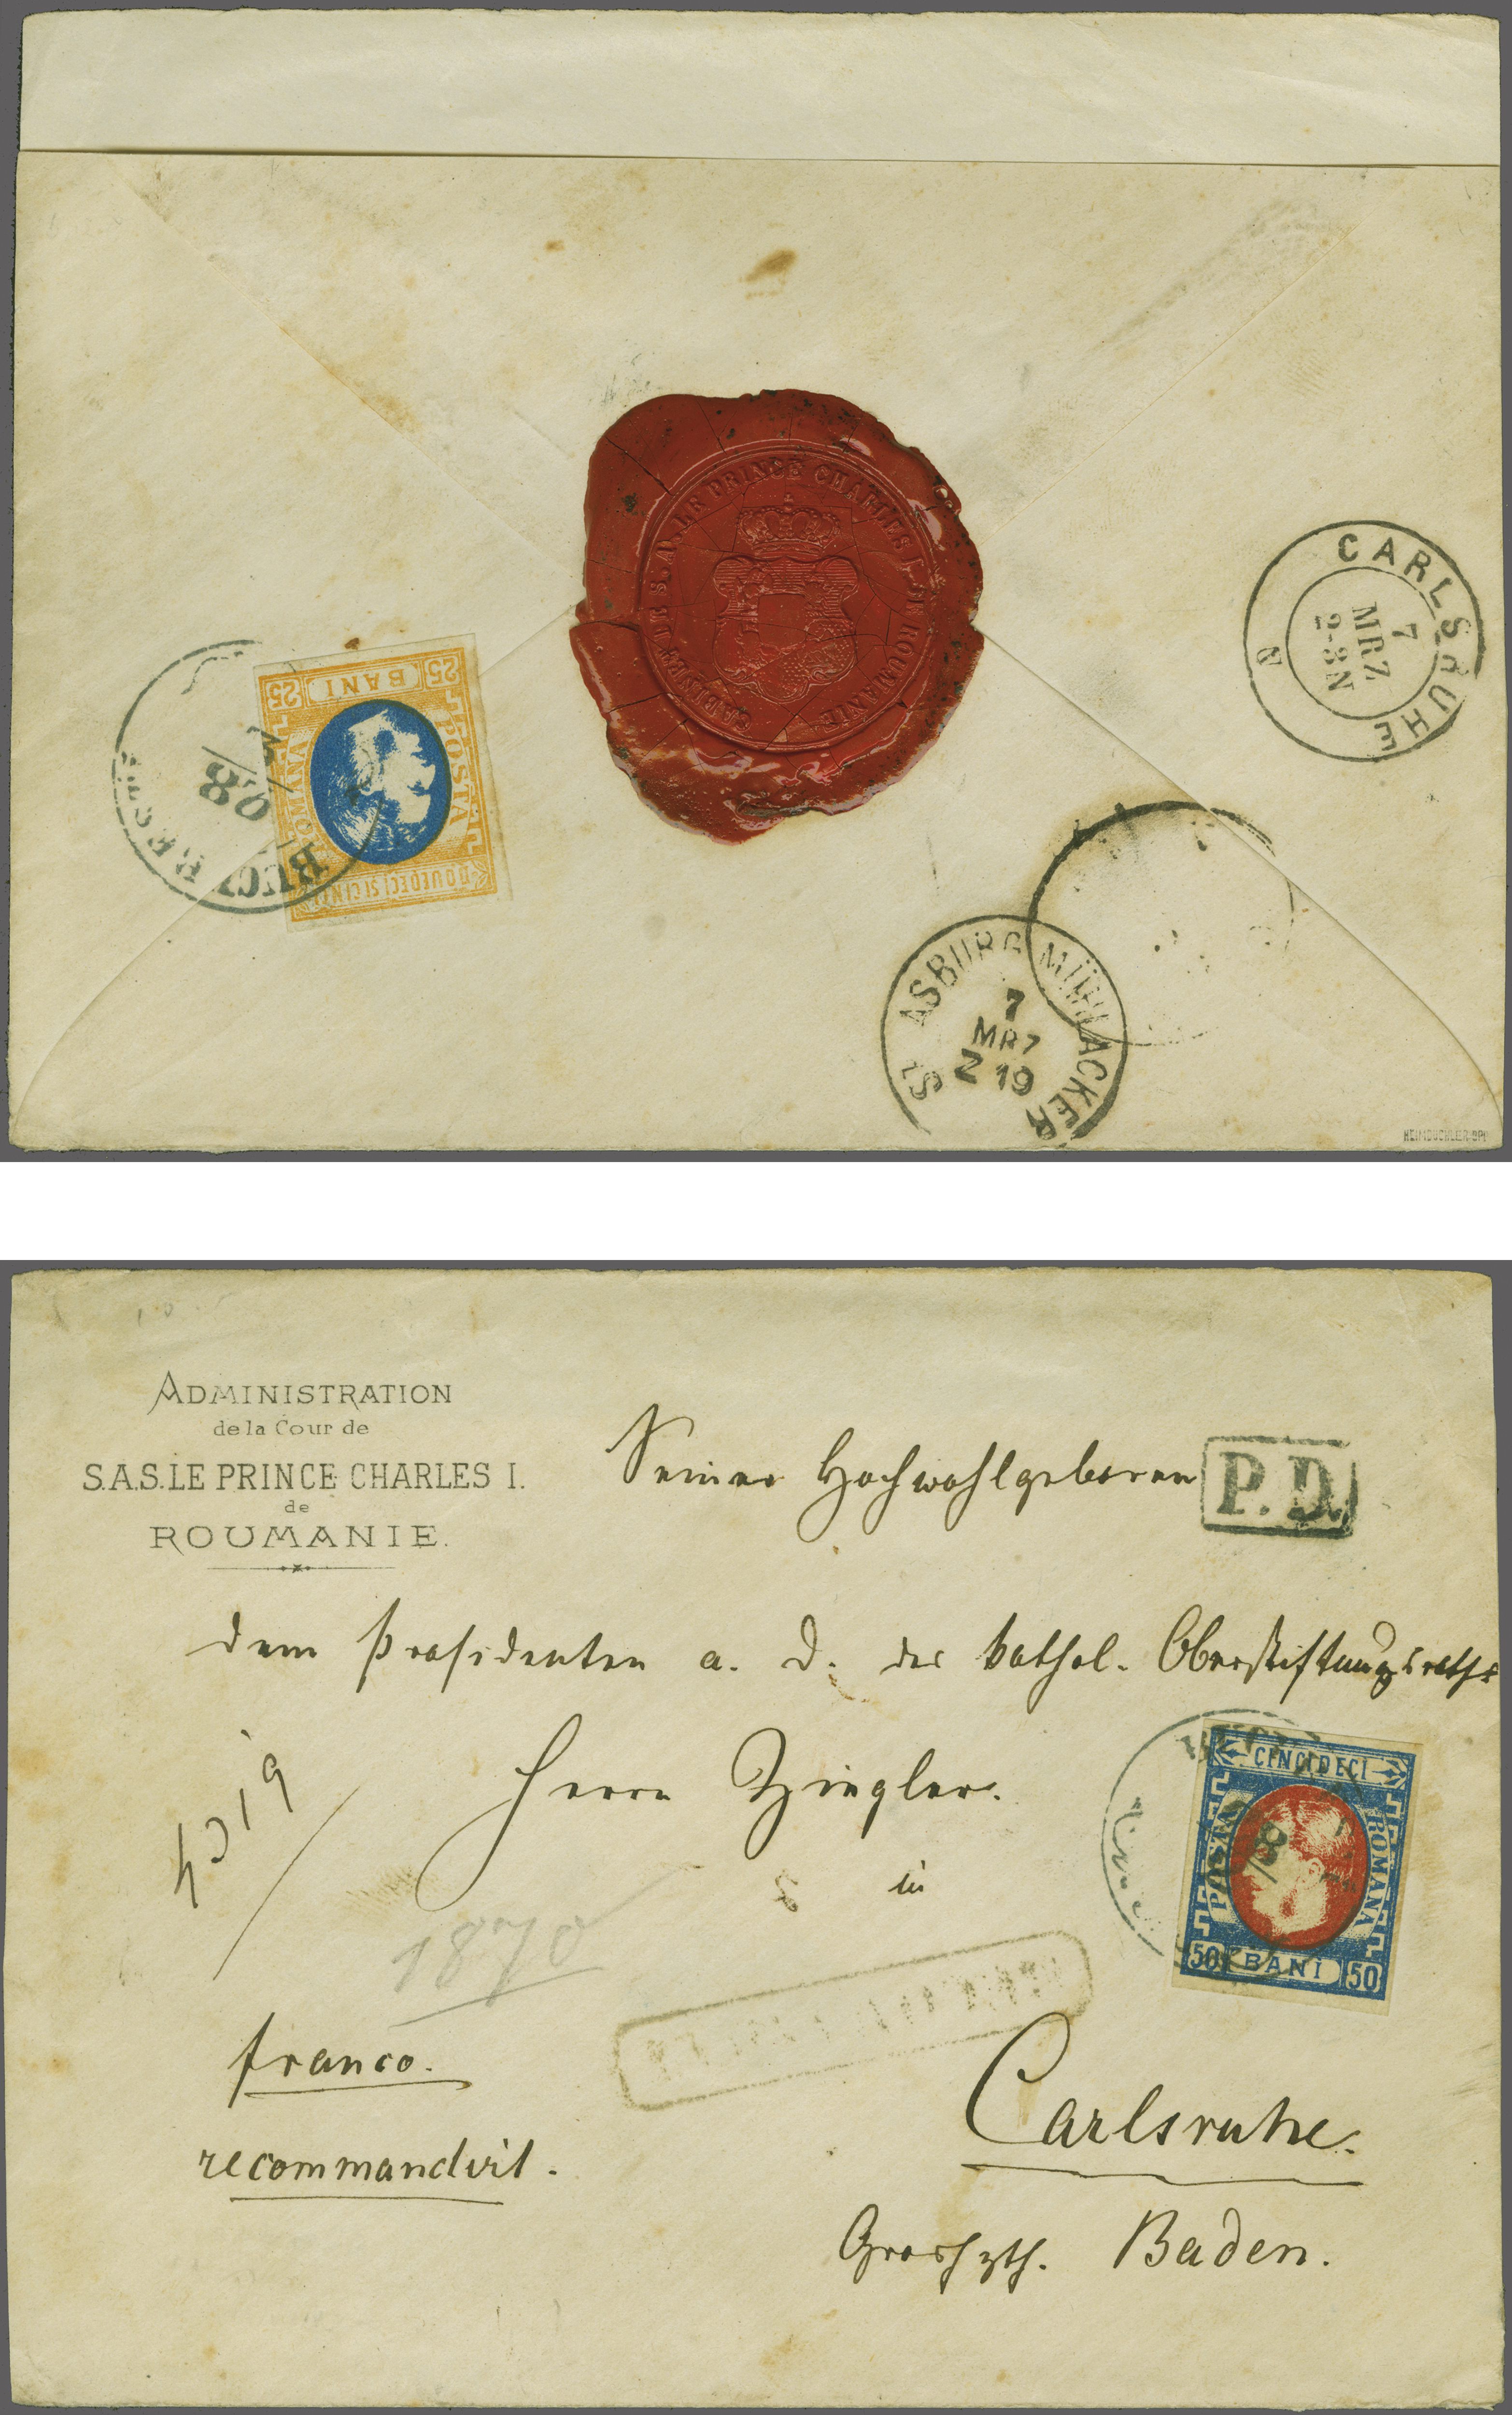 CABINET DE S. A. LE PRINCE CHARLES I. DE ROUMANIE
25 BANI 25
POSTA
ROMANA
DOUEDECI SI CINCI
BUCURESCI
CARLSRUHE
7
MRZ
2-3N
STRASBURG MÜHLACKER
7
MRZ
Z 19
ADMINISTRATION
de la Cour de
S.A.S. LE PRINCE CHARLES I.
de
ROUMANIE.
Seiner Hochwohlgeboren
P.D.
dem Präsidenten a. D. des kathol. Oberstiftungsraths
Herrn Ziegler.
in
1870
CINCIDECI
POSTA
ROMANA
50 BANI 50
franco.
recommandirt.
Carlsruhe.
Grossh zth. Baden.